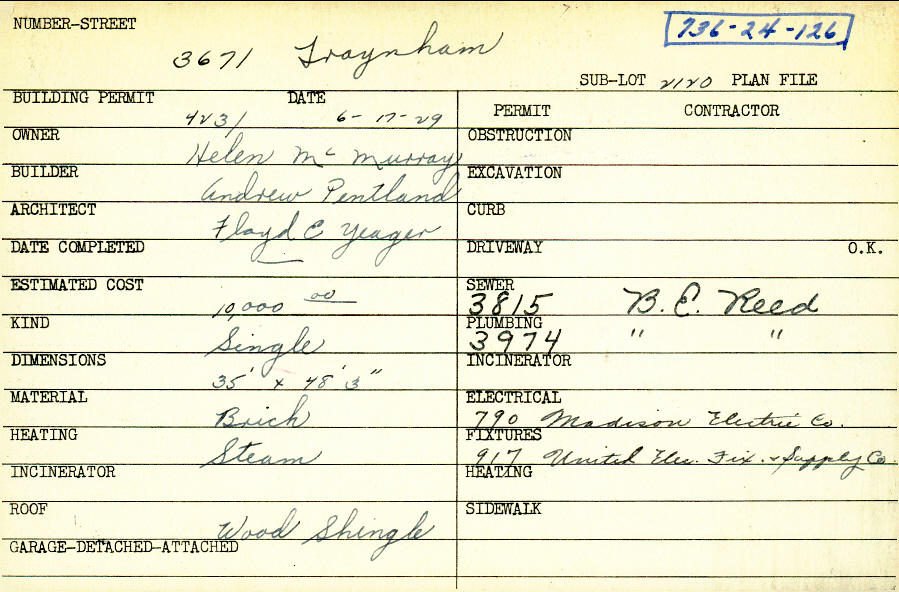 NUMBER-STREET
736-24-126
3671 Traynham
SUB-LOT 2120 PLAN FILE
BUILDING PERMIT DATE
4231 6-17-29
OWNER
Helen Mc Murray
BUILDER
Andrew Pentland
ARCHITECT
Floyd E Yeager
DATE COMPLETED
ESTIMATED COST
10,000 00
KIND
Single
DIMENSIONS
35' x 48' 3"
MATERIAL
Brick
HEATING
Steam
INCINERATOR
ROOF
Wood Shingle
GARAGE-DETACHED-ATTACHED
PERMIT CONTRACTOR
OBSTRUCTION
EXCAVATION
CURB
DRIVEWAY O.K.
SEWER
3815 B.E. Reed
PLUMBING
3974 " "
INCINERATOR
ELECTRICAL
790 Madison Electric Co.
FIXTURES
917 United Elec. Fix. & Supply Co.
HEATING
SIDEWALK